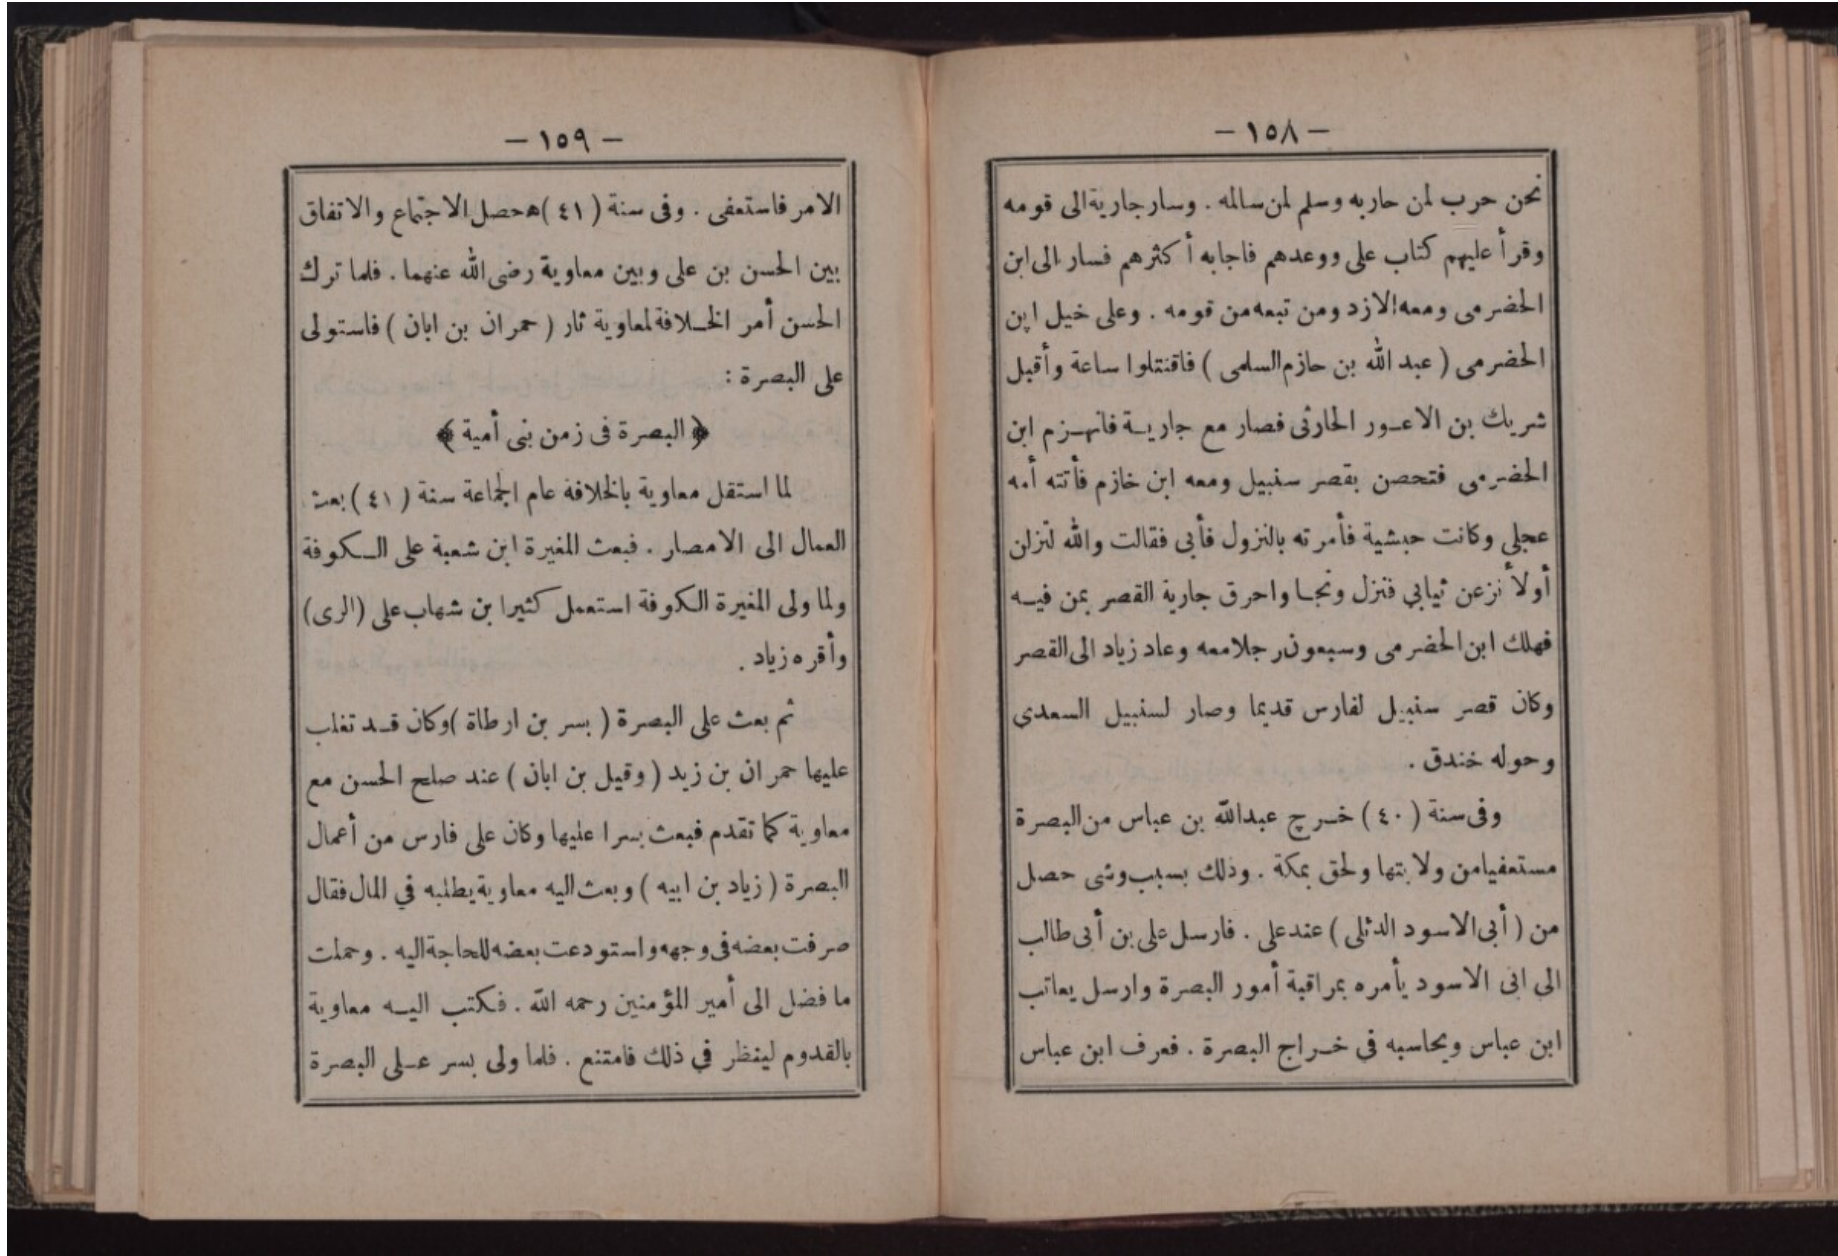 — ١٥٨ —
نحن حرب لمن حاربه وسلم لمن سالمه . وسار جارية الى قومه
وقرأ عليهم كتاب على ووعدهم فاجابه أكثرهم فسار الى ابن
الحضرمى ومعه الازد ومن تبعه من قومه . وعلى خيل ابن
الحضرمى ( عبد الله بن حازم السلمى ) فاقتتلوا ساعة وأقبل
شريك بن الاعور الحارثى فصار مع جارية فانهزم ابن
الحضرمى فتحصن بقصر سنبيل ومعه ابن خازم فأتته أمه
عجلى وكانت حبشية فأمرته بالنزول فأبى فقالت والله لتزلن
أولأ نزعن ثيابي فنزل ونجا واحرق جارية القصر بمن فيه
فهلك ابن الحضرمى وسبعون رجلا معه وعاد زياد الى القصر
وكان قصر سنبيل لفارس قديما وصار لسنبيل السعدى
وحوله خندق .
وفى سنة ( ٤٠ ) خرج عبدالله بن عباس من البصرة
مستعفيا من ولايتها ولحق بمكة . وذلك بسبب وشى حصل
من ( أبى الاسود الدئلى ) عند على . فارسل على بن أبى طالب
الى ابى الاسود يأمره بمراقبة أمور البصرة وارسل يعاتب
ابن عباس ويحاسبه في خراج البصرة . فعرف ابن عباس
— ١٥٩ —
الامر فاستعفى . وفى سنة ( ٤١ )ه حصل الاجتماع والاتفاق
بين الحسن بن على وبين معاوية رضى الله عنهما . فلما ترك
الحسن أمر الخلافة لمعاوية ثار ( حمران بن ابان ) فاستولى
على البصرة :
﴿ البصرة فى زمن بنى أمية ﴾
لما استقل معاوية بالخلافة عام الجماعة سنة ( ٤١ ) بعث
العمال الى الامصار . فبعث المغيرة ابن شعبة على الكوفة
ولما ولى المغيرة الكوفة استعمل كثيرا بن شهاب على (الرى)
وأقره زياد .
ثم بعث على البصرة ( بسر بن ارطاة )وكان قد تغلب
عليها حمران بن زيد ( وقيل بن ابان ) عند صلح الحسن مع
معاوية كما تقدم فبعث بسرا عليها وكان على فارس من أعمال
البصرة ( زياد بن ابيه ) وبعث اليه معاوية يطلبه في المال فقال
صرفت بعضه فى وجهه واستودعت بعضه للحاجة اليه . وحملت
ما فضل الى أمير المؤمنين رحمه الله . فكتب اليه معاوية
بالقدوم لينظر في ذلك فامتنع . فلما ولى بسر على البصرة